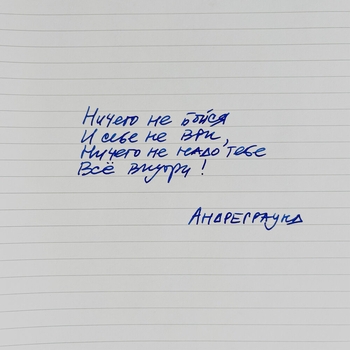 Ничего не бойся
И себе не ври,
Ничего не надо тебе
Всё внутри!
Андреграунд